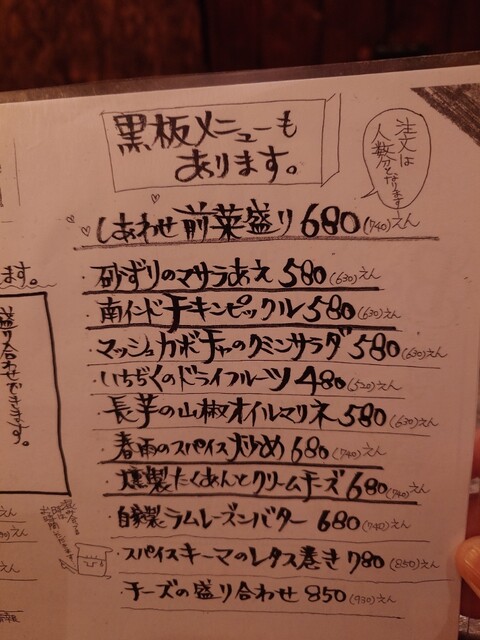 黒板メニューも
あります。
注文は
人数分となります
しあわせ前菜盛り 680(740)えん
・砂ずりのマサラあえ 580(630)えん
・南インドチキンピックル 580(630)えん
・マッシュカボチャのクミンサラダ 580(630)えん
・いちぢくのドライフルーツ 480(520)えん
・長芋の山椒オイルマリネ 580(630)えん
・春雨のスパイス炒め 680(740)えん
・燻製たくあんとクリームチーズ 680(740)えん
・自家製ラムレーズンバター 680(740)えん
・スパイスキーマのレタス巻き 780(850)えん
・チーズの盛り合わせ 850(930)えん
ます。
盛り合わせできます。
えん
えん
えん